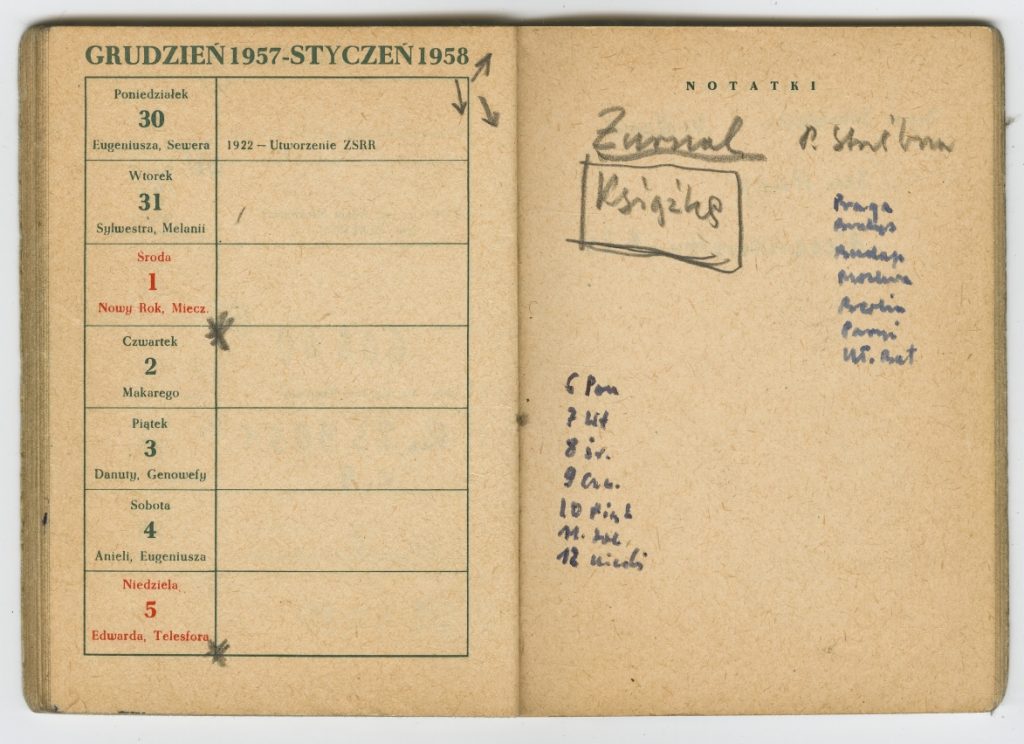 GRUDZIEŃ 1957-STYCZEŃ 1958
Poniedziałek
30
Eugeniusza, Sewera
1922 – Utworzenie ZSRR
Wtorek
31
Sylwestra, Melanii
Sroda
1
Nowy Rok, Miecz.
Czwartek
2
Makarego
Piątek
3
Danuty, Genowefy
Sobota
4
Anieli, Eugeniusza
Niedziela
5
Edwarda, Telesfora
NOTATKI
Żurnal
Książkę
Praga
Budap
Moskwa
Berlin
6 Pon
7 Wt
8 śr.
9 Czw.
10 Piąt
11. Sob.
12 niedz